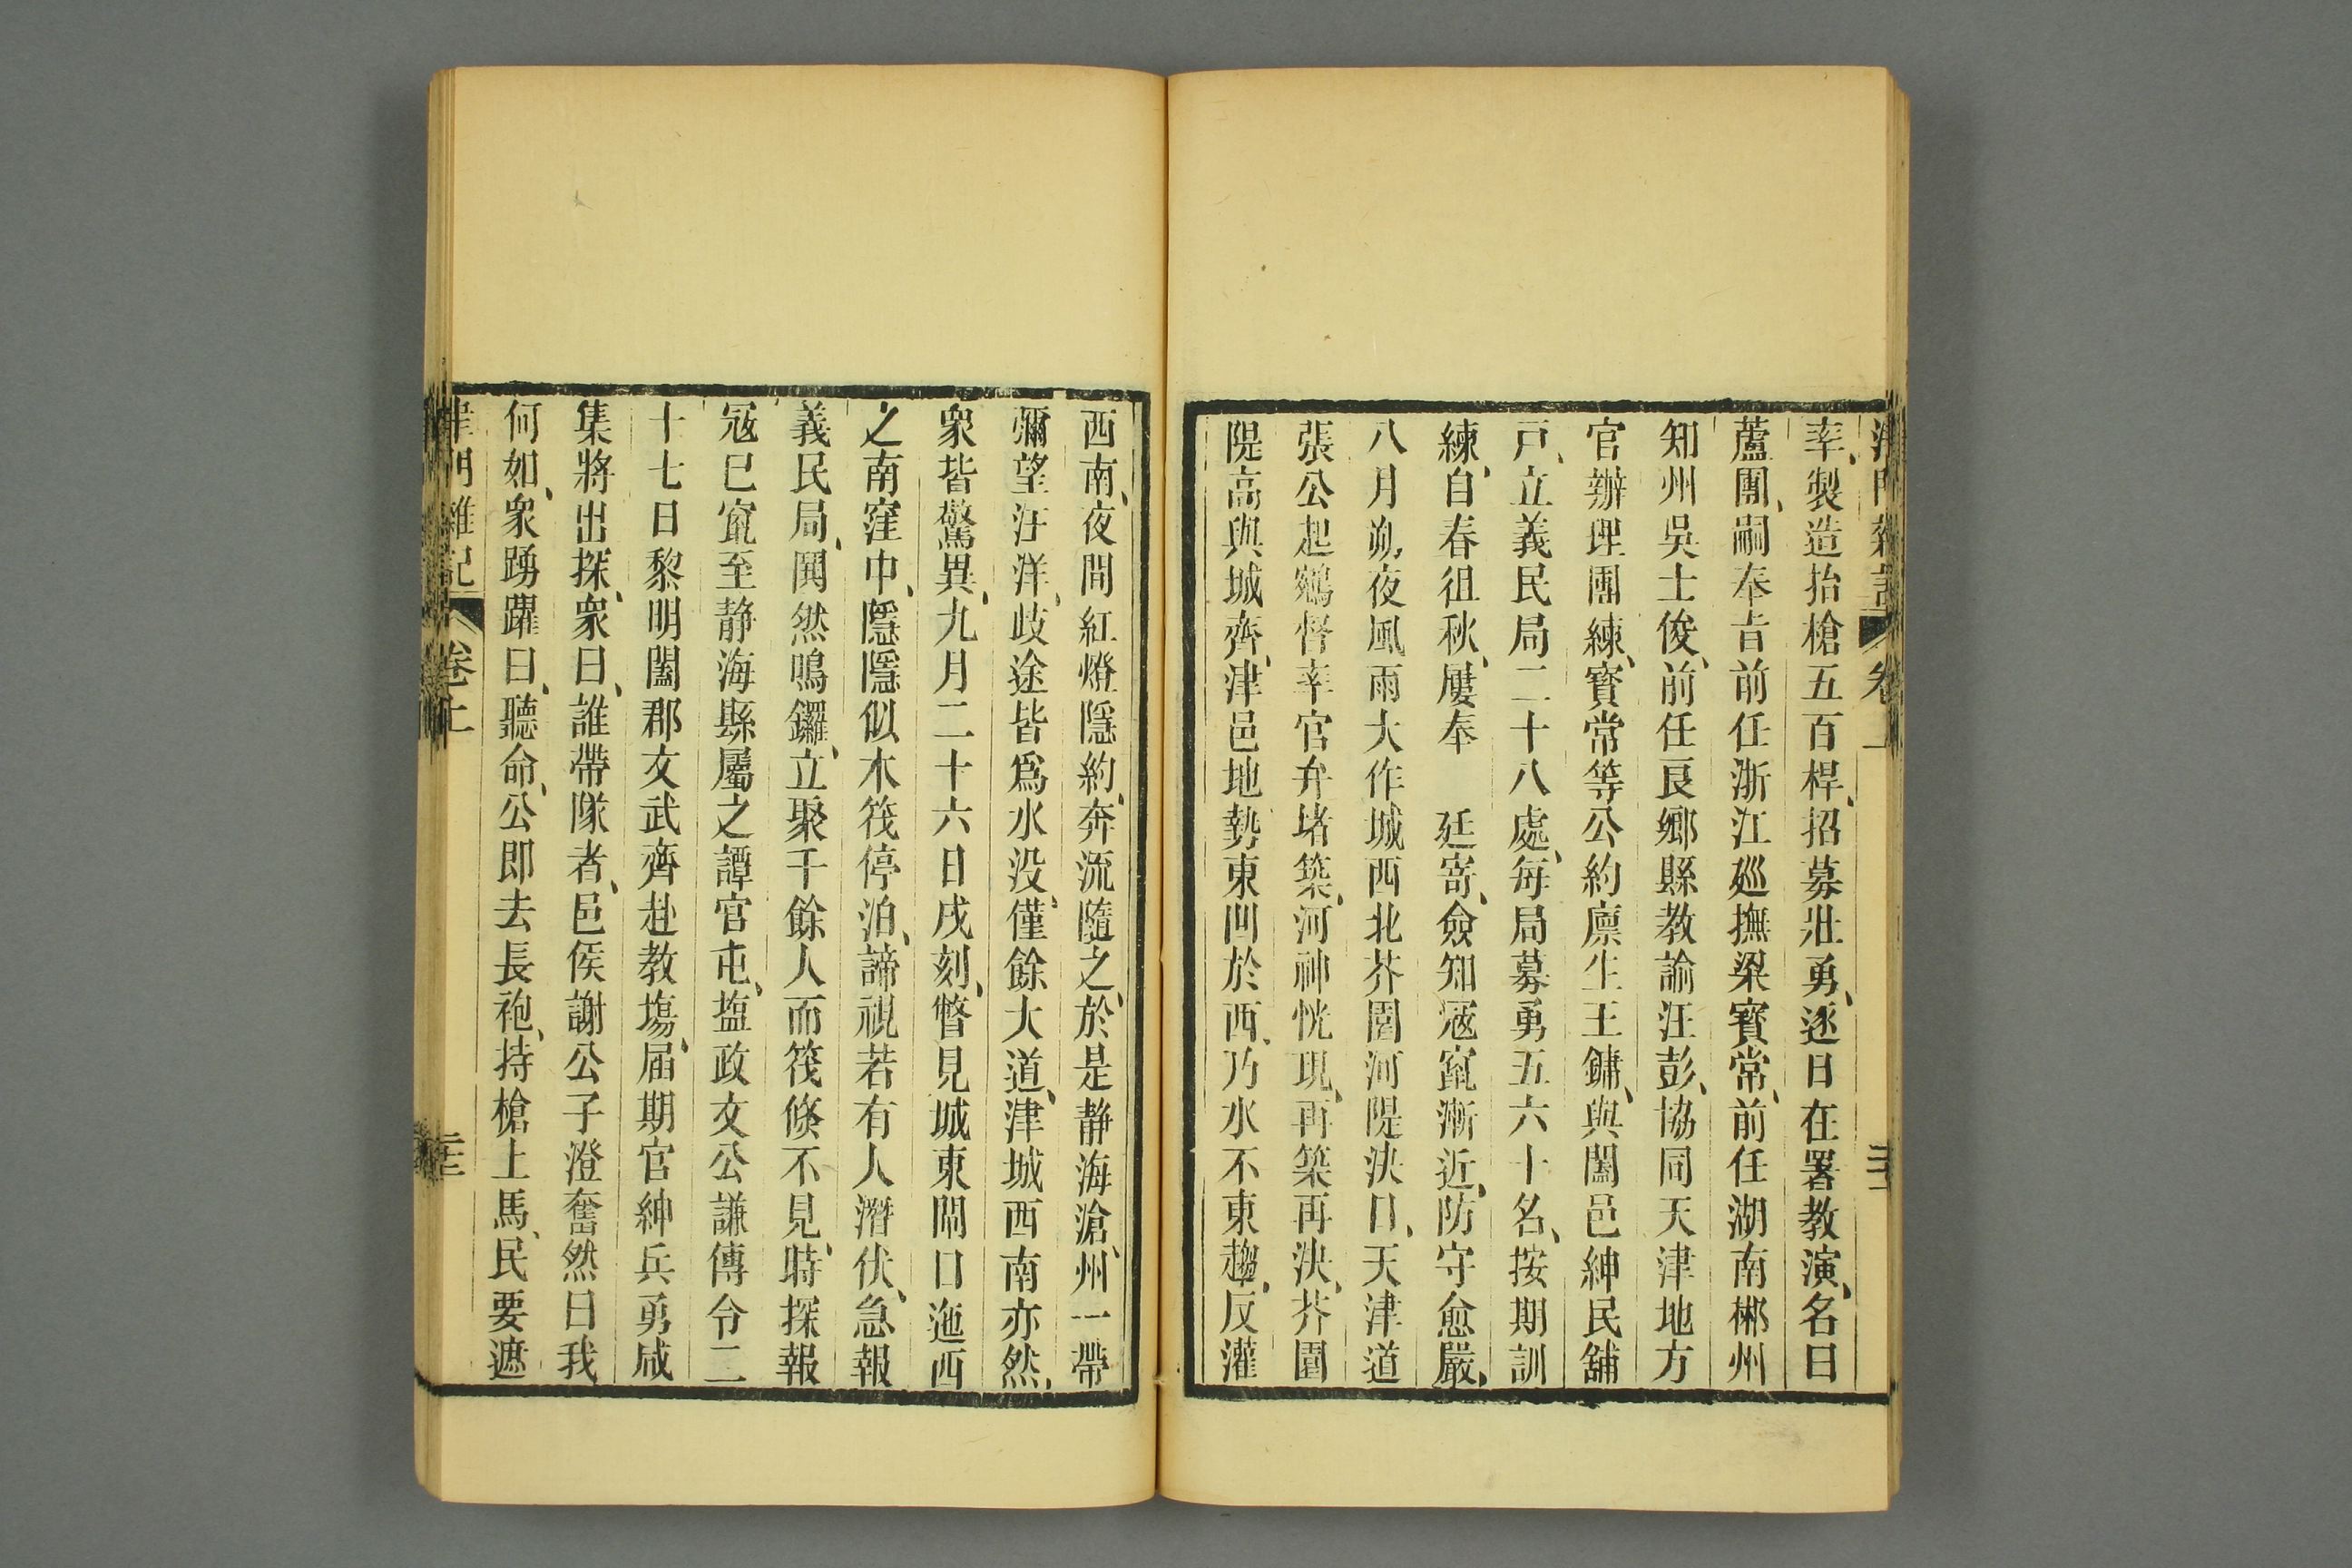 率、製造抬槍五百桿、招募壯勇、逐日在署教演、名曰
蘆團、嗣奉旨前任浙江廵撫梁寶常、前任湖南郴州
知州吳士俊、前任良鄉縣教諭汪彭、協同天津地方
官辦理團練、寶常等公約廪生王鏞、與闔邑紳民舖
戸、立義民局二十八處、每局募勇五六十名、按期訓
練、自春徂秋、屢奉　廷寄、僉知冦竄漸近、防守愈嚴、
八月朔夜風雨大作城西北芥園河隄決口、天津道
張公起鵷督率官弁堵築、河神恍現、再築再決、芥園
隄高與城齊、津邑地勢東凹於西、乃水不東趨、反灌
西南、夜間紅燈隱約、奔流隨之、於是静海滄、州一帶
彌望汪洋、歧途皆爲水没、僅餘大道、津城西南亦然、
衆皆驚異、九月二十六日戌刻、瞥見城東閘口迤西
之南窪中、隱隱似木筏停泊、諦視若有人潛伏、急報
義民局、鬨然鳴鑼、立聚千餘人而筏倏不見、時探報
冦已竄至静海縣屬之譚官屯、塩政文公謙傳令二
十七日黎明闔郡文武齊赴教塲、届期官紳兵勇咸
集將出探、衆曰、誰帶隊者、邑侯謝公子澄奮然曰我
何如、衆踴躍曰、聽命、公即去長袍、持槍上馬、民要遮
津門雜記　卷上